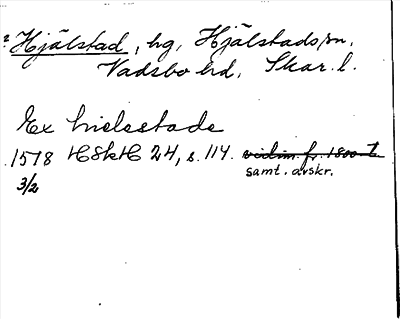 ? Hjälstad, hg, Hjälstads sn,
Vadsbo hd, Skar. l.
Ex hielsstade
1578 HSkH 24, s. 114. vidim. fr. 1800-t.
3/2 samt. avskr.